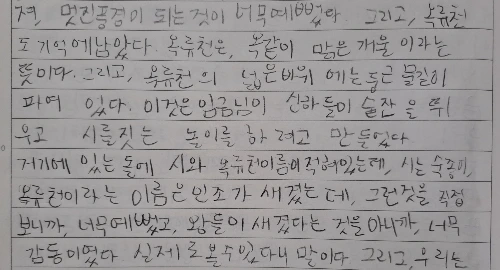 쳐, 멋진풍경이 되는것이 너무예뻤다. 그리고, 옥류천
도 기억에남았다. 옥류천은, 옥같이 맑은 개울 이라는
뜻이다. 그리고, 옥류천 의 넓은바위 에는 둥근 물길이
파여 있다. 이것은 임금님이 신하들이 술잔 을 띄
우고 시를짓는 놀이를 하려고 만들었다
거기에 있는 돌에 시와 옥류천이름이적혀있는데, 시는 숙종이,
옥류천이라는 이름은 인조가 새겼는데, 그런것을 직접
보니까, 너무예뻤고, 왕들이 새겼다는 것을 아니까, 너무
감동이였다. 실제로 볼수있다니 말이다. 그리고, 우리는